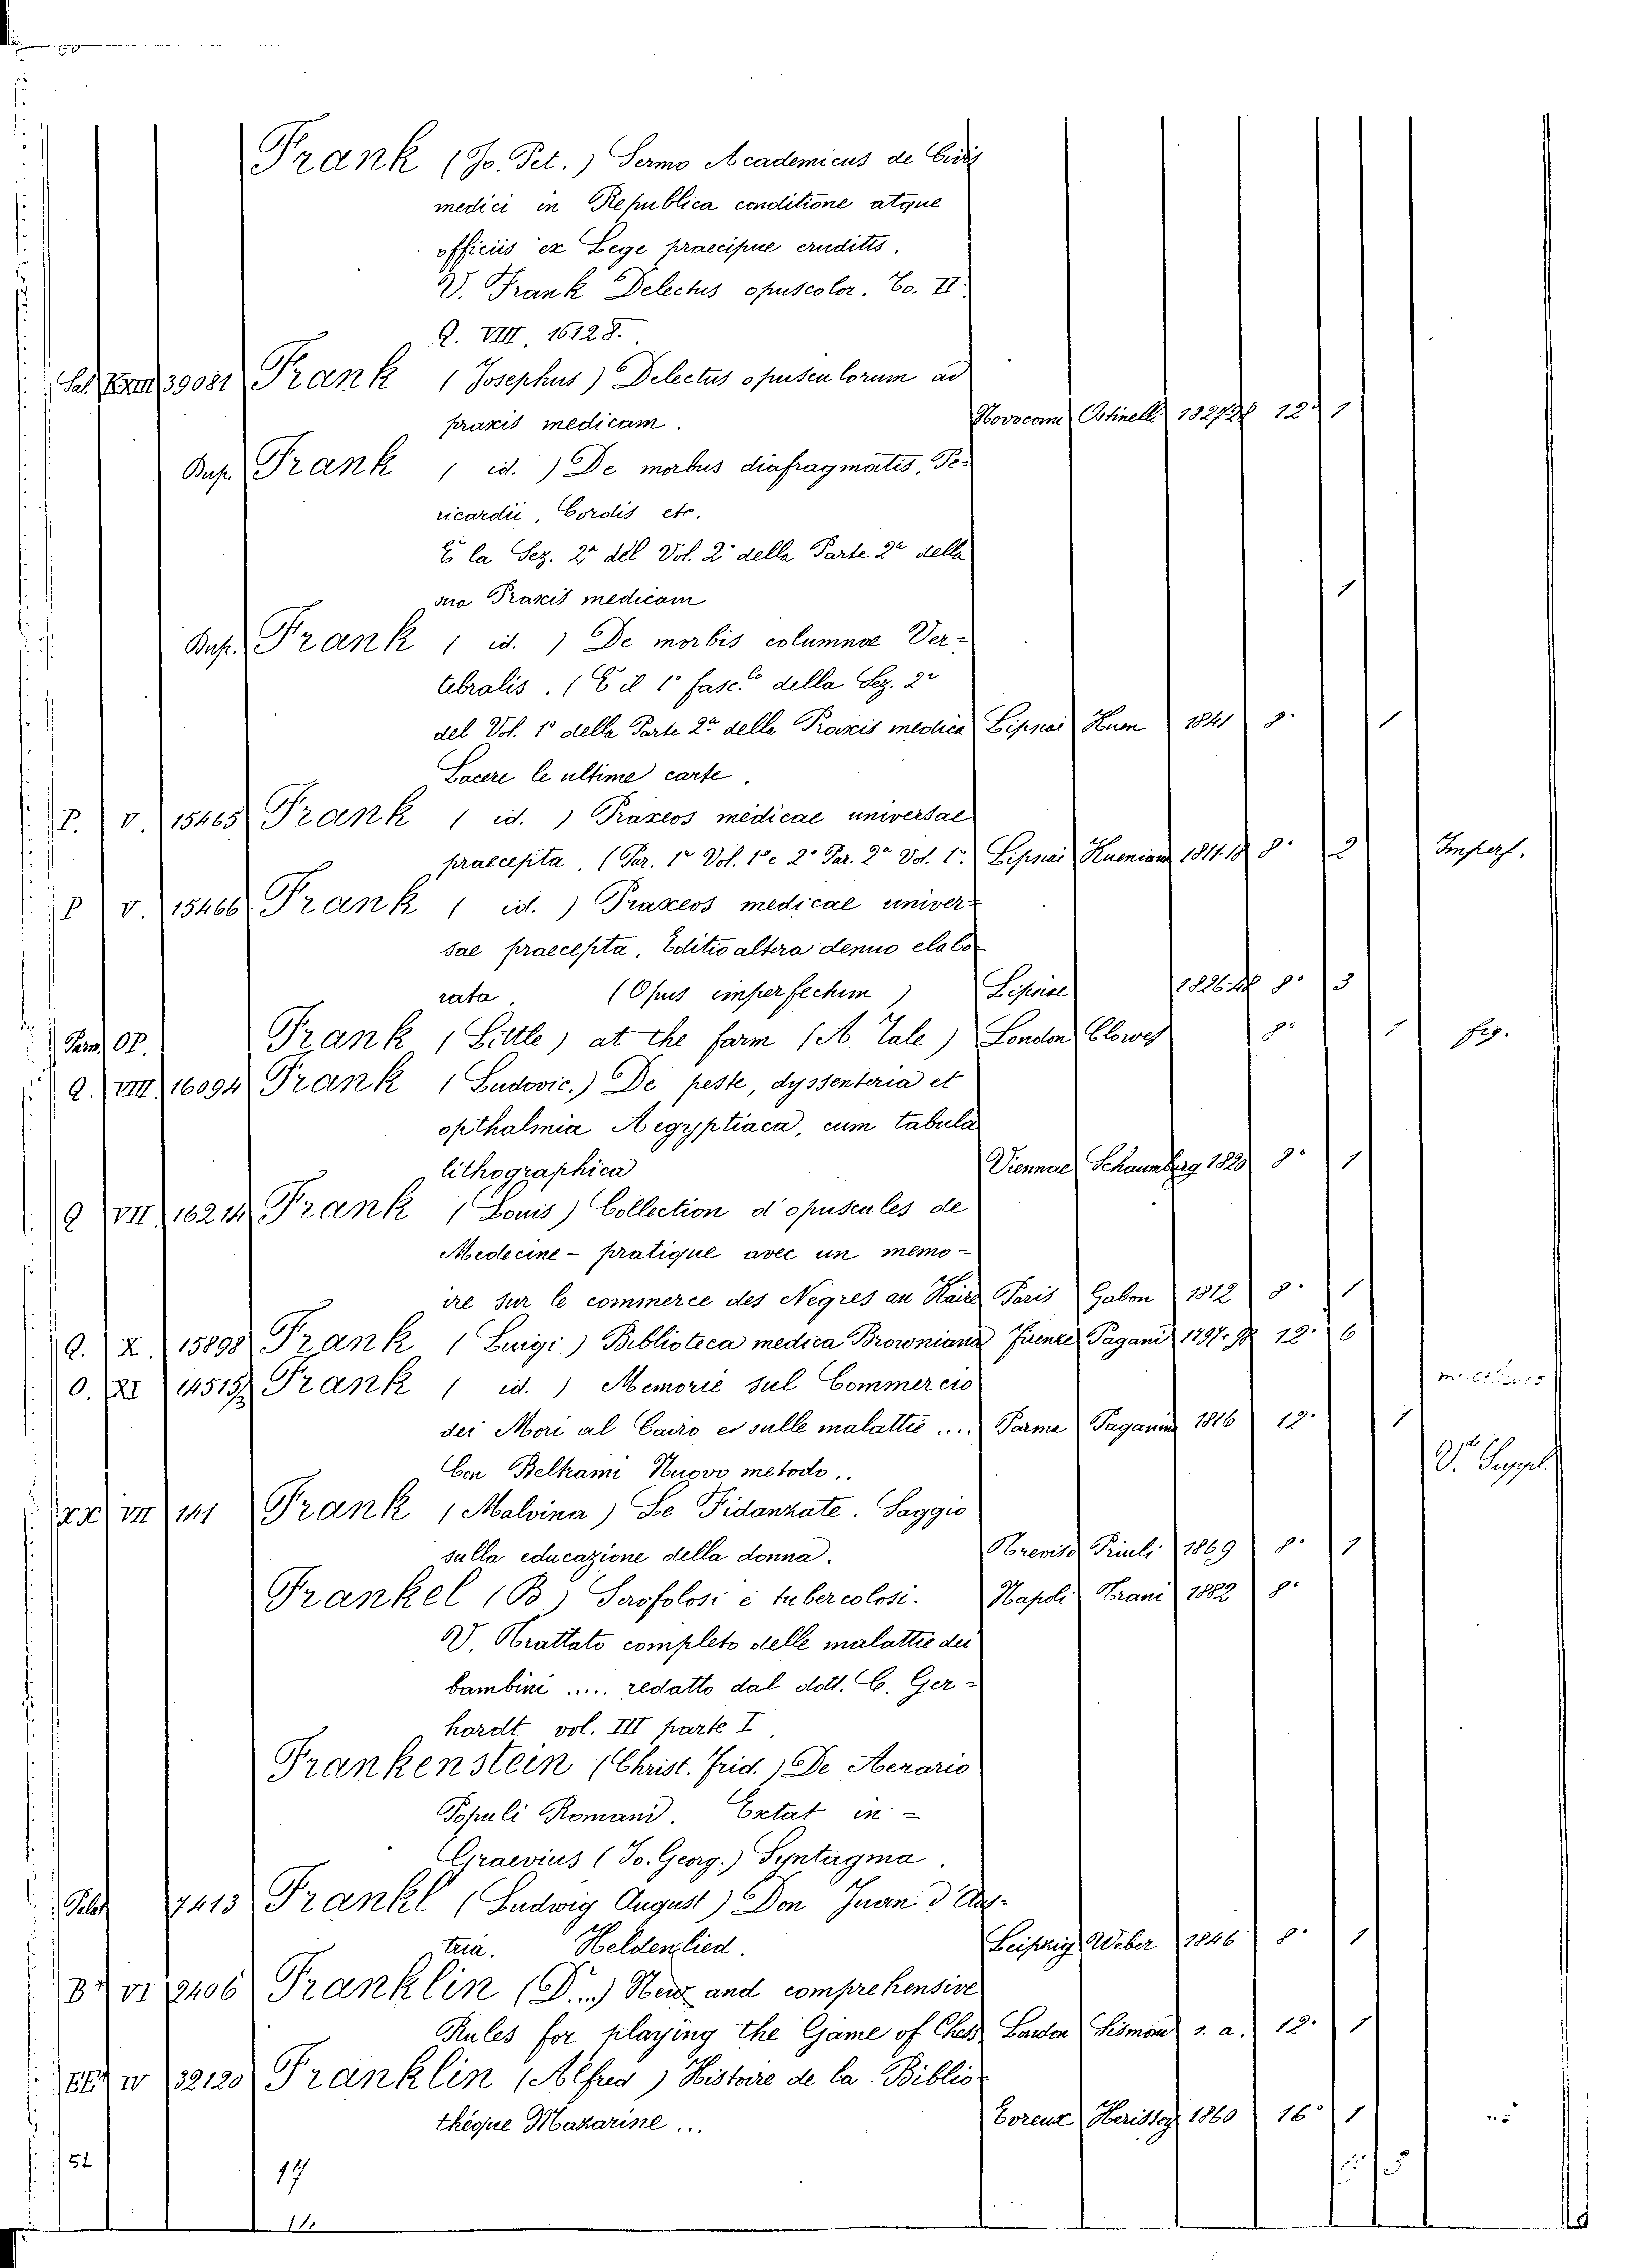 Frank (Jo. Pet.) Sermo Academicus de Civis
medici in Republica conditione atque
officiis ex Lege praecipue eruditis.
V. Frank Delectus opuscolor. To. II
Q. VIII 16128.
Sal. 39081 Frank (Josephus) Delectus opusculorum ad
praxis medicam. Novocomi Ostinelli 12° 1
Bup. Frank (id.) De morbus diafragmatis, Pe-
ricardii, Cordis etc.
È la Sez. 2ª del Vol. 2° della Parte 2ª della
sua Praxis medicam 1
Bup. Frank (id.) De morbis columnae Ver-
tebralis. (È il 1° fasc.° della Sez. 2ª
del Vol. 1° della Parte 2ª della Praxis medica Lipsiae Kuen 1841 8° 1
Lacere le ultime carte.
P. V. 15465 Frank (id.) Praxeos medicae universae
praecepta. (Par. 1ª Vol. 1° e 2° Par. 2ª Vol. 1°. Lipsiae Kueniana 1811.18 8° 2 Imperf.
P V. 15466 Frank (id.) Praxeos medicae univer-
sae praecepta, Editio altera denuo elabo-
rata. (Opus imperfectum) Lipsiae 8° 3
Parm. OP. Frank (Little) at the farm (A. Tale) London Clowes 8° 1 fig.
Q. VIII 16094 Frank (Ludovic.) De peste, dyssenteria et
opthalmia Aegyptiaca, cum tabula
lithographica Viennae Schaumberg 1820 8° 1
Q VII 16214 Frank (Louis) Collection d'opuscules de
Medecine - pratique avec un memo-
ire sur le commerce des Negres au Kaire Paris Gabon 1812 8° 1
Q. X. 15898 Frank (Luigi) Biblioteca medica Browniana Firenze Pagani 1797.98 12° 6
O. XI 14515/2 Frank (id.) Memorie sul Commercio
dei Mori al Cairo e sulle malattie .... Parma Paganino 1816 12° 1
Con Beltrami Nuovo metodo.. V. Suppl.
XX VII 141 Frank (Malvina) Le Fidanzate. Saggio
sulla educazione della donna. Treviso Priuli 1869 8° 1
Frankel (B) Scrofolosi e tubercolosi. Napoli Trani 1882 8°
V. Trattato completo delle malattie dei
bambini ..... redatto dal dott. C. Ger-
hardt vol. III parte I.
Frankenstein (Christ. Frid.) De Aerario
Populi Romani. Extat in -
Graevius (Jo. Georg.) Syntagma.
Palat 7413 Frankl (Ludwig August) Don Juan d'Aus-
tria. Heldenslied. Leipzig Weber 1846 8° 1
B+ VI 2406 Franklin (D...) New and comprehensive
Rules for playing the Game of Chess London Sismond s. a. 12° 1
EE+ IV 32120 Franklin (Alfred) Histoire de la Biblio-
thèque Mazarine ... Evreux Herissey 1860 16° 1
52
17